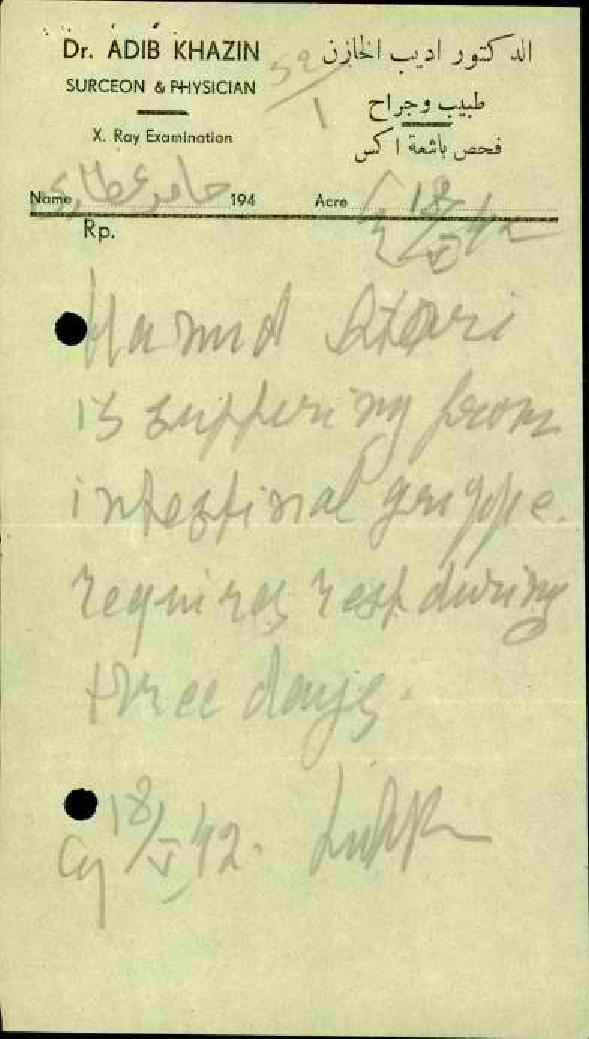 Dr. ADIB KHAZIN
SURGEON & PHYSICIAN
X. Ray Examination
الدكتور اديب الخازن
طبيب وجراح
فحص باشعة اكس
59/1
Name حامد عطاري 194 Acre 18/V 42
Rp.
Hamid Attari
is suffering from
intestinal grippe.
requires rest during
three days.
18/V 42.